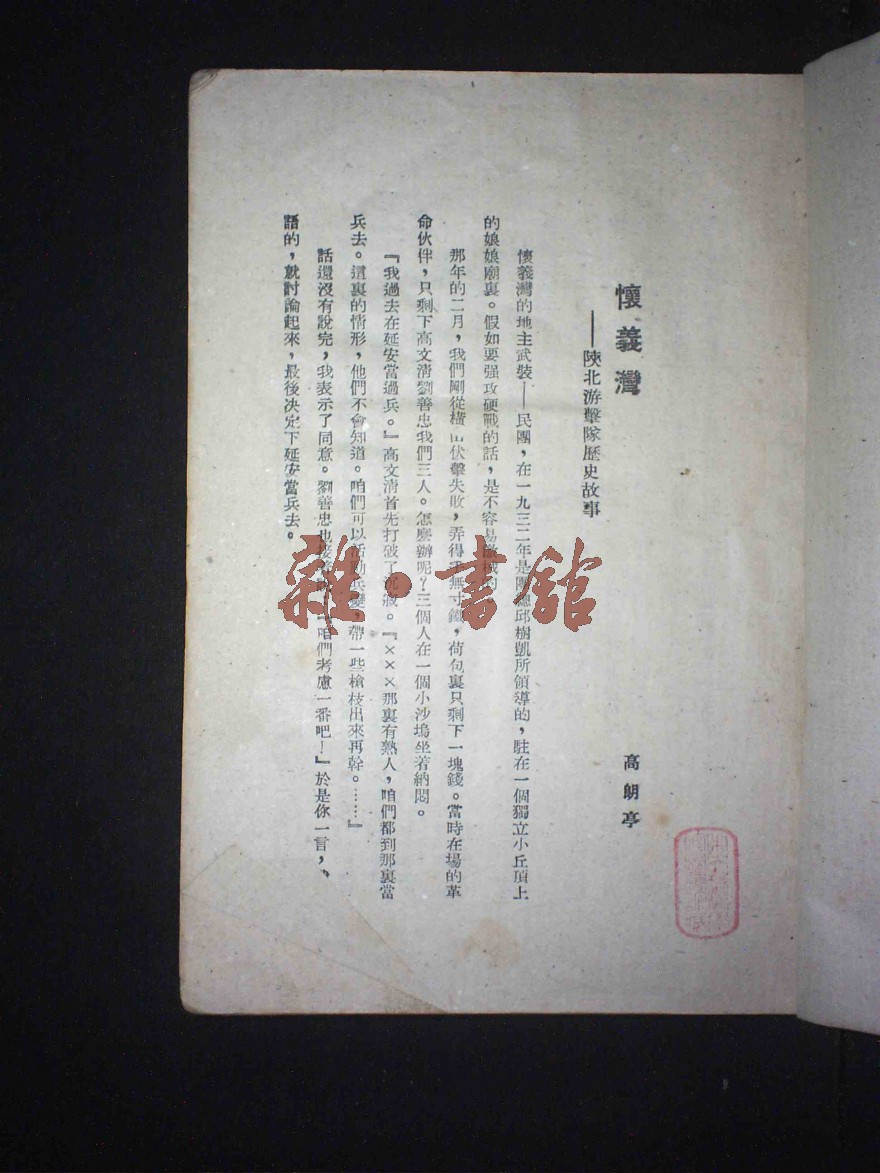 懷義灣
——陝北游擊隊歷史故事
高朗亭
懷義灣的地主武裝——民團，在一九三二年是團總邱樹凱所領導的，駐在一個獨立小丘頂上
的娘娘廟裏。假如要强攻硬戰的話，是不容易
那年的二月，我們剛從橫山伏擊失敗，弄得手無寸鐵，荷包裏只剩下一塊錢。當時在場的革
命伙伴，只剩下高文清劉善忠我們三人。怎麼辦呢？三個人在一個小沙塢坐着納悶。
『我過去在延安當過兵。』高文清首先打破了沉寂。『×××那裏有熟人，咱們都到那裏當
兵去。這裏的情形，他們不會知道。咱們可以活動兵變，帶一些槍枝出來再幹。……』
話還沒有說完，我表示了同意。劉善忠也接 咱們考慮一番吧！』於是你一言，
語的，就討論起來，最後決定下延安當兵去。
雜·書館